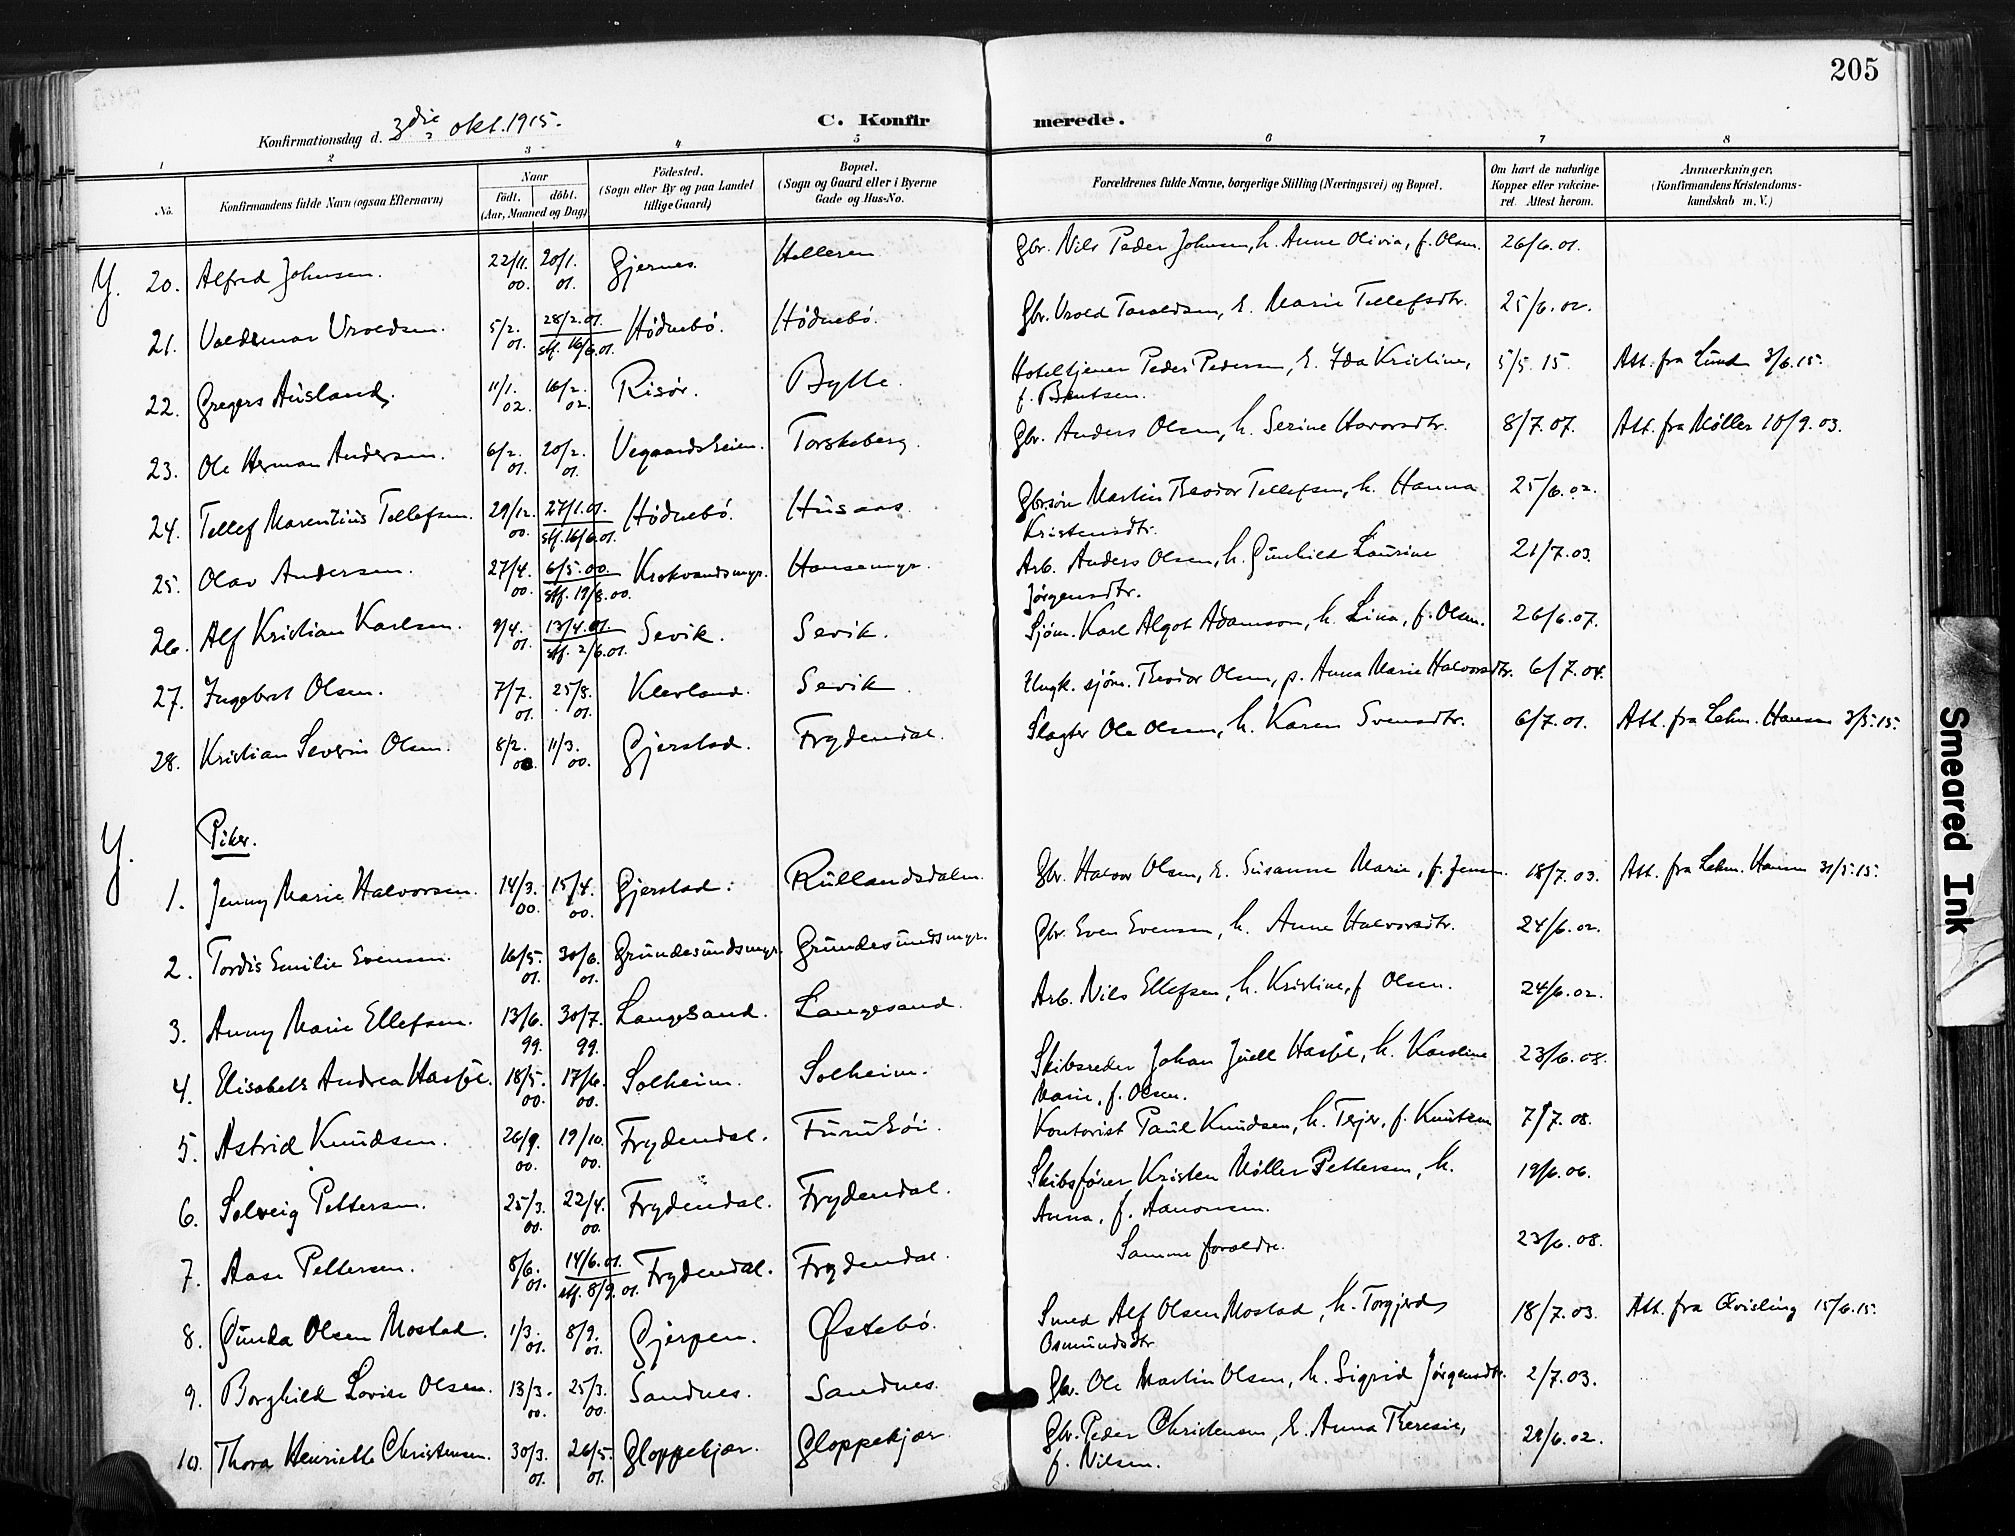 205
Konfirmationsdag d. 3die okt. 1915.
C. Konfirmerede.
1 2 3 4 5 6 7 8
No. Konfirmandens fulde Navn (ogsaa Efternavn) Naar født. døbt. (Aar, Maaned og Dag) Fødested. (Sogn eller By og paa Landet tillige Gaard) Bopæl. (Sogn og Gaard eller i Byerne Gade og Hus-No. Forældrenes fulde Navne, borgerlige Stilling (Næringsvei) og Bopæl. Om havt de naturlige Kopper eller vakcineret. Attest herom. Anmærkninger. (Konfirmandens Kristendomskundskab m. V.)
Y. 20. Alfred Johnsen. 22/11. 00. 20/1. 01. Gjernes. Helleren Gbr. Nils Peder Johnsen, h. Anne Olivia, f. Olsen. 26/6.01.
21. Valdemar Vroldsen. 5/2. 01. 28/2.01. stf. 16/6.01. Hødnebø. Hødnebø. Gbr. Vrold Taraldsen, h. Marie Tellefsdtr. 25/6.02.
22. Gregers Ausland. 11/1. 02. 16/2. 02. Risør. Bylle. Hoteltjener Peder Pedersen, h. Ida Kristine, 5/5.15. Att. fra Lund 3/6.15.
23. Ole Herman Andersen. 6/2. 01. 20/2. 01. Vegaardsheien. Torskeberg. Gbr. Anders Olsen, h. Serine Havorsdtr. 8/7.07. Att. fra Møller 10/9.03.
24. Tellef Marentius Tellefsen. 29/12. 00. 27/1.01. stf. 16/6.01. Hødnebø. Husaas. Gbrsøn Martin Teodor Tellefsen, h. Hanna Kristensdtr. 25/6.02.
25. Olav Andersen. 27/4. 00. 6/5.00. stf. 19/8.00. Krokvandsmyr. Hansemyr. Arb. Anders Olsen, h. Gunhild Laurine Jørgensdtr. 21/7.03.
26. Alf Kristian Karlsen. 9/4. 01. 13/4.01. stf. 2/6.01. Sevik. Sevik. Sjøm. Karl Algot Adamson, h. Lina, f. Olsen. 26/6.07.
27. Ingebret Olsen. 7/7. 01. 25/8. 01. Klevland. Sevik. Ungk. sjøm. Teodor Olsen, p. Anna Marie Halvorsdtr. 6/7.04.
28. Kristian Severin Olsen. 8/2. 00. 11/3. 00. Gjerstad. Frydendal. Slagter Ole Olsen, h. Karen Svensdtr. 6/7.01. Att. fra Lehm. Hansen 3/5.15.
Y. Piker.
1. Jenny Marie Halvorsen. 14/3. 00. 15/4. 00. Gjerstad. Rullandsdalen. Gbr. Halvor Olsen, h. Susanne Marie, f. Jensen. 18/7.03. Att. fra Lehm. Hansen 31/5.15.
2. Tordis Emilie Evensen. 16/5. 01. 30/6. 01. Grundesundsmyr. Grundesundsmyr. Gbr. Even Evensen, h. Anne Halvorsdtr. 24/6.02.
3. Anny Marie Ellefsen. 13/6. 99. 30/7. 99. Langesand. Langesand. Arb. Nils Ellefsen, h. Kristine, f. Olsen. 24/6.02.
4. Elisabeth Andrea Hasfjel. 18/5. 00. 17/6. 00. Solheim. Solheim. Skibsreder Johan Juell Hasfjel, h. Karoline Marie, f. Olsen. 23/6.08.
5. Astrid Knudsen. 26/9. 00. 19/10. 00. Frydendal. Furuhøi. Kontorist Paul Knudsen, h. Terjer, f. Knutsen 7/7.08.
6. Solveig Pettersen. 25/3. 00. 22/4. 00. Frydendal. Frydendal. Skibsfører Kristen Møller Pettersen, h. Anna, f. Aanonsen. 19/6.06.
7. Aase Pettersen. 8/6. 01. 14/6.01. stf. 8/9.01. Frydendal. Frydendal. Samme forældre. 23/6.08.
8. Gunda Olsen Mostad. 1/3. 01. 8/9. 01. Gjerpen. Østebø. Smed Alf Olsen Mostad, h. Torgjerd Osmundsdtr 18/7.03. Att. fra Qvisling 15/6.15.
9. Borghild Lovise Olsen. 13/3. 00. 25/3. 00. Sandnes. Sandnes. Gbr. Ole Martin Olsen, h. Sigrid Jørgensdtr. 2/7.03.
10. Thora Henriette Christensen. 30/3. 01. 26/5. 01. Gloppekjær. Gloppekjær. Gbr. Peder Christensen, h. Anna Theresie, f. Nilsen. 28/6.02.
Smeared Ink